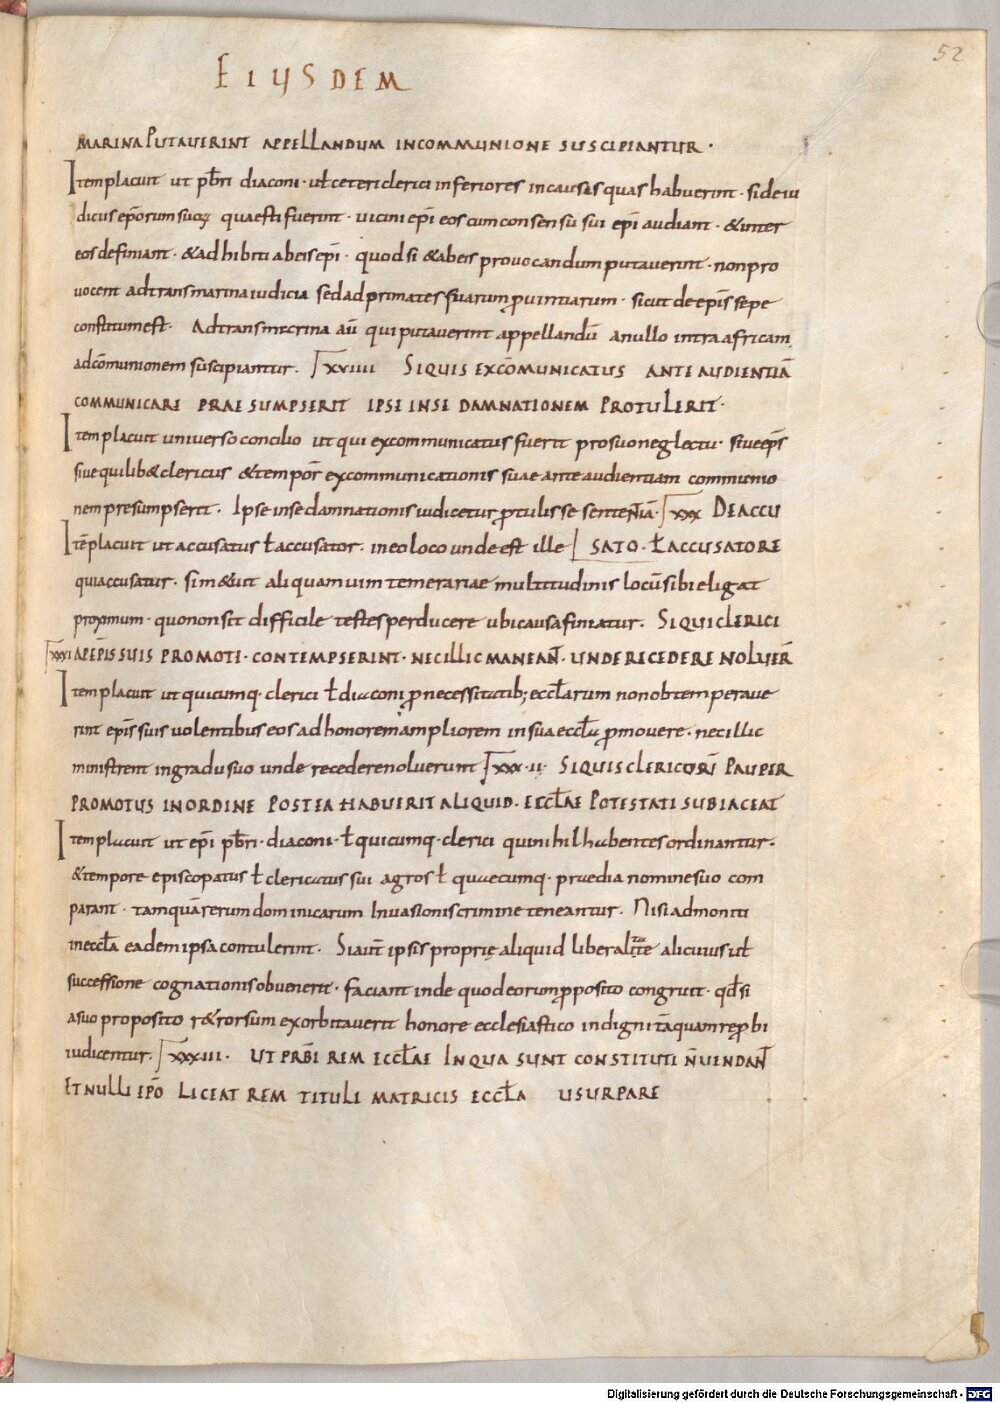 52
EIUSDEM
MARINA PUTAUERINT APPELLANDUM INCOMMUNIONE SUSCIPIANTUR ·
Item placuit ut pb̄ri diaconi · ut̄ ceteri clerici inferiores in causis quas habuerint · si de iu
dicus ep̄orum suoꝝ quaesti fuerint · uicini ep̄i eos cum consensu sui ep̄i audiant · & inter
eos definiant · & adhibiti ab eis ep̄i · quod si & ab eis prouocandum putauerint · non pro
uocent ad transmarina iudicia sed ad primates suarum ꝓuintiarum · sicut de ep̄is sepe
constitutum est · Ad transmarina aū qui putauerint appellandū a nullo intra africam
ad cōmunionem suscipiantur · XXVIIII SIQUIS EXCOMUNICATUS ANTE AUDIENTIĀ
COMMUNICARE PRAESUMPSERIT IPSE IN SE DAMNATIONEM PROTULERIT ·
Item placuit uniuerso concilio ut qui excommunicatus fuerit pro suo neglectu · siue ep̄s
siue quilib& clericus & tempor̄ excommunicationis suae ante audientiam communio
nem presumpserit · Ipse in se damnationis iudicetur ꝓtulisse sententiā · XXX DE ACCU
Itē placuit ut accusatus ł accusator · in eo loco unde est ille SATO · ł ACCUSATORE
qui accusatur · si m&uit aliquam uim temerariae multitudinis locū sibi eligat
proximum · quo non sit difficile testes perducere ubi causa finiatur · SIQUI CLERICI
XXXI AB EP̄IS SUIS PROMOTI · CONTEMPSERINT · NEC ILLIC MANEAN̄ · UNDE RECEDERE NOLUER̄
Item placuit ut quicumq · clerici ł diaconi ꝓ necessitatib; eccl̄arum non obtemperaue
rint ep̄is suis uolentibus eos ad honorem ampliorem in sua eccl̄a ꝓmouere · nec illic
ministrent in gradu suo unde recedere noluerunt XXX·II· SIQUIS CLERICORŪ PAUPER
PROMOTUS IN ORDINE POSTEA HABUERIT ALIQUID · ECCL̄AE POTESTATI SUBIACEAT
Item placuit ut ep̄i pb̄ri · diaconi · ł quicumq · clerici qui nihil habentes ordinantur ·
& tempore episcopatus ł clericatus sui agros ł quaecumq · praedia nomine suo com
parant · tamquā rerum dominicarum Inuasionis crimine teneantur · Nisi admoniti
in eccl̄a eadem ipsa contulerint · Si aut̄ ipsis proprię aliquid liberalitate alicuius ut̄
successione cognationis obuenerit · faciant inde quod eorum ꝓposito congruit · qd̄ si
a suo proposito r&rorsum exorbitauerit honore ecclesiastico indigni tāquam reprobi
iudicentur · XXXIII · UT PRB̄I REM ECCL̄AE IN QUA SUNT CONSTITUTI N̄ UENDAN̄
ET NULLI EP̄O LICEAT REM TITULI MATRICIS ECCL̄A USURPARE
Digitalisierung gefördert durch die Deutsche Forschungsgemeinschaft - DFG